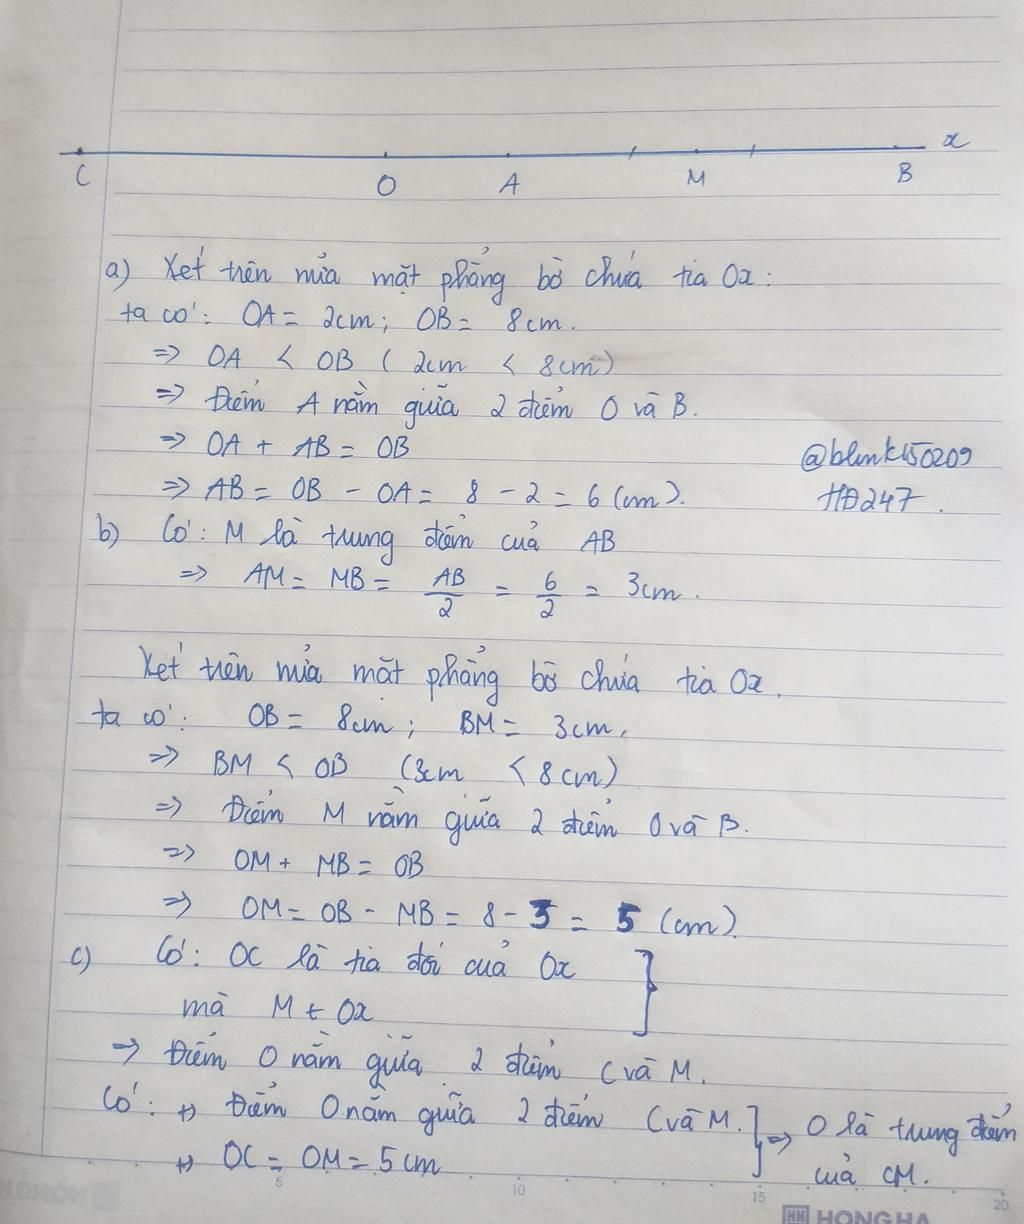 x
C O A M B
a) Xét trên nửa mặt phẳng bờ chứa tia Ox:
ta có: OA = 2cm; OB = 8cm.
=> OA < OB ( 2cm < 8cm)
=> Điểm A nằm giữa 2 điểm O và B.
=> OA + AB = OB
=> AB = OB - OA = 8 - 2 = 6 (cm).
@blink150209
HĐ247.
b) Có: M là trung điểm của AB
=> AM = MB = AB/2 = 6/2 = 3cm.
Xét trên nửa mặt phẳng bờ chứa tia Ox.
ta có: OB = 8cm; BM = 3cm,
=> BM < OB (3cm < 8cm)
=> Điểm M nằm giữa 2 điểm O và B.
=> OM + MB = OB
=> OM = OB - MB = 8 - 3 = 5 (cm).
c) Có: OC là tia đối của Ox
mà M ∈ Ox
=> Điểm O nằm giữa 2 điểm C và M.
Có: +) Điểm O nằm giữa 2 điểm C và M. } => O là trung điểm
+) OC = OM = 5cm của CM.
5 10 15 20
HONG HA